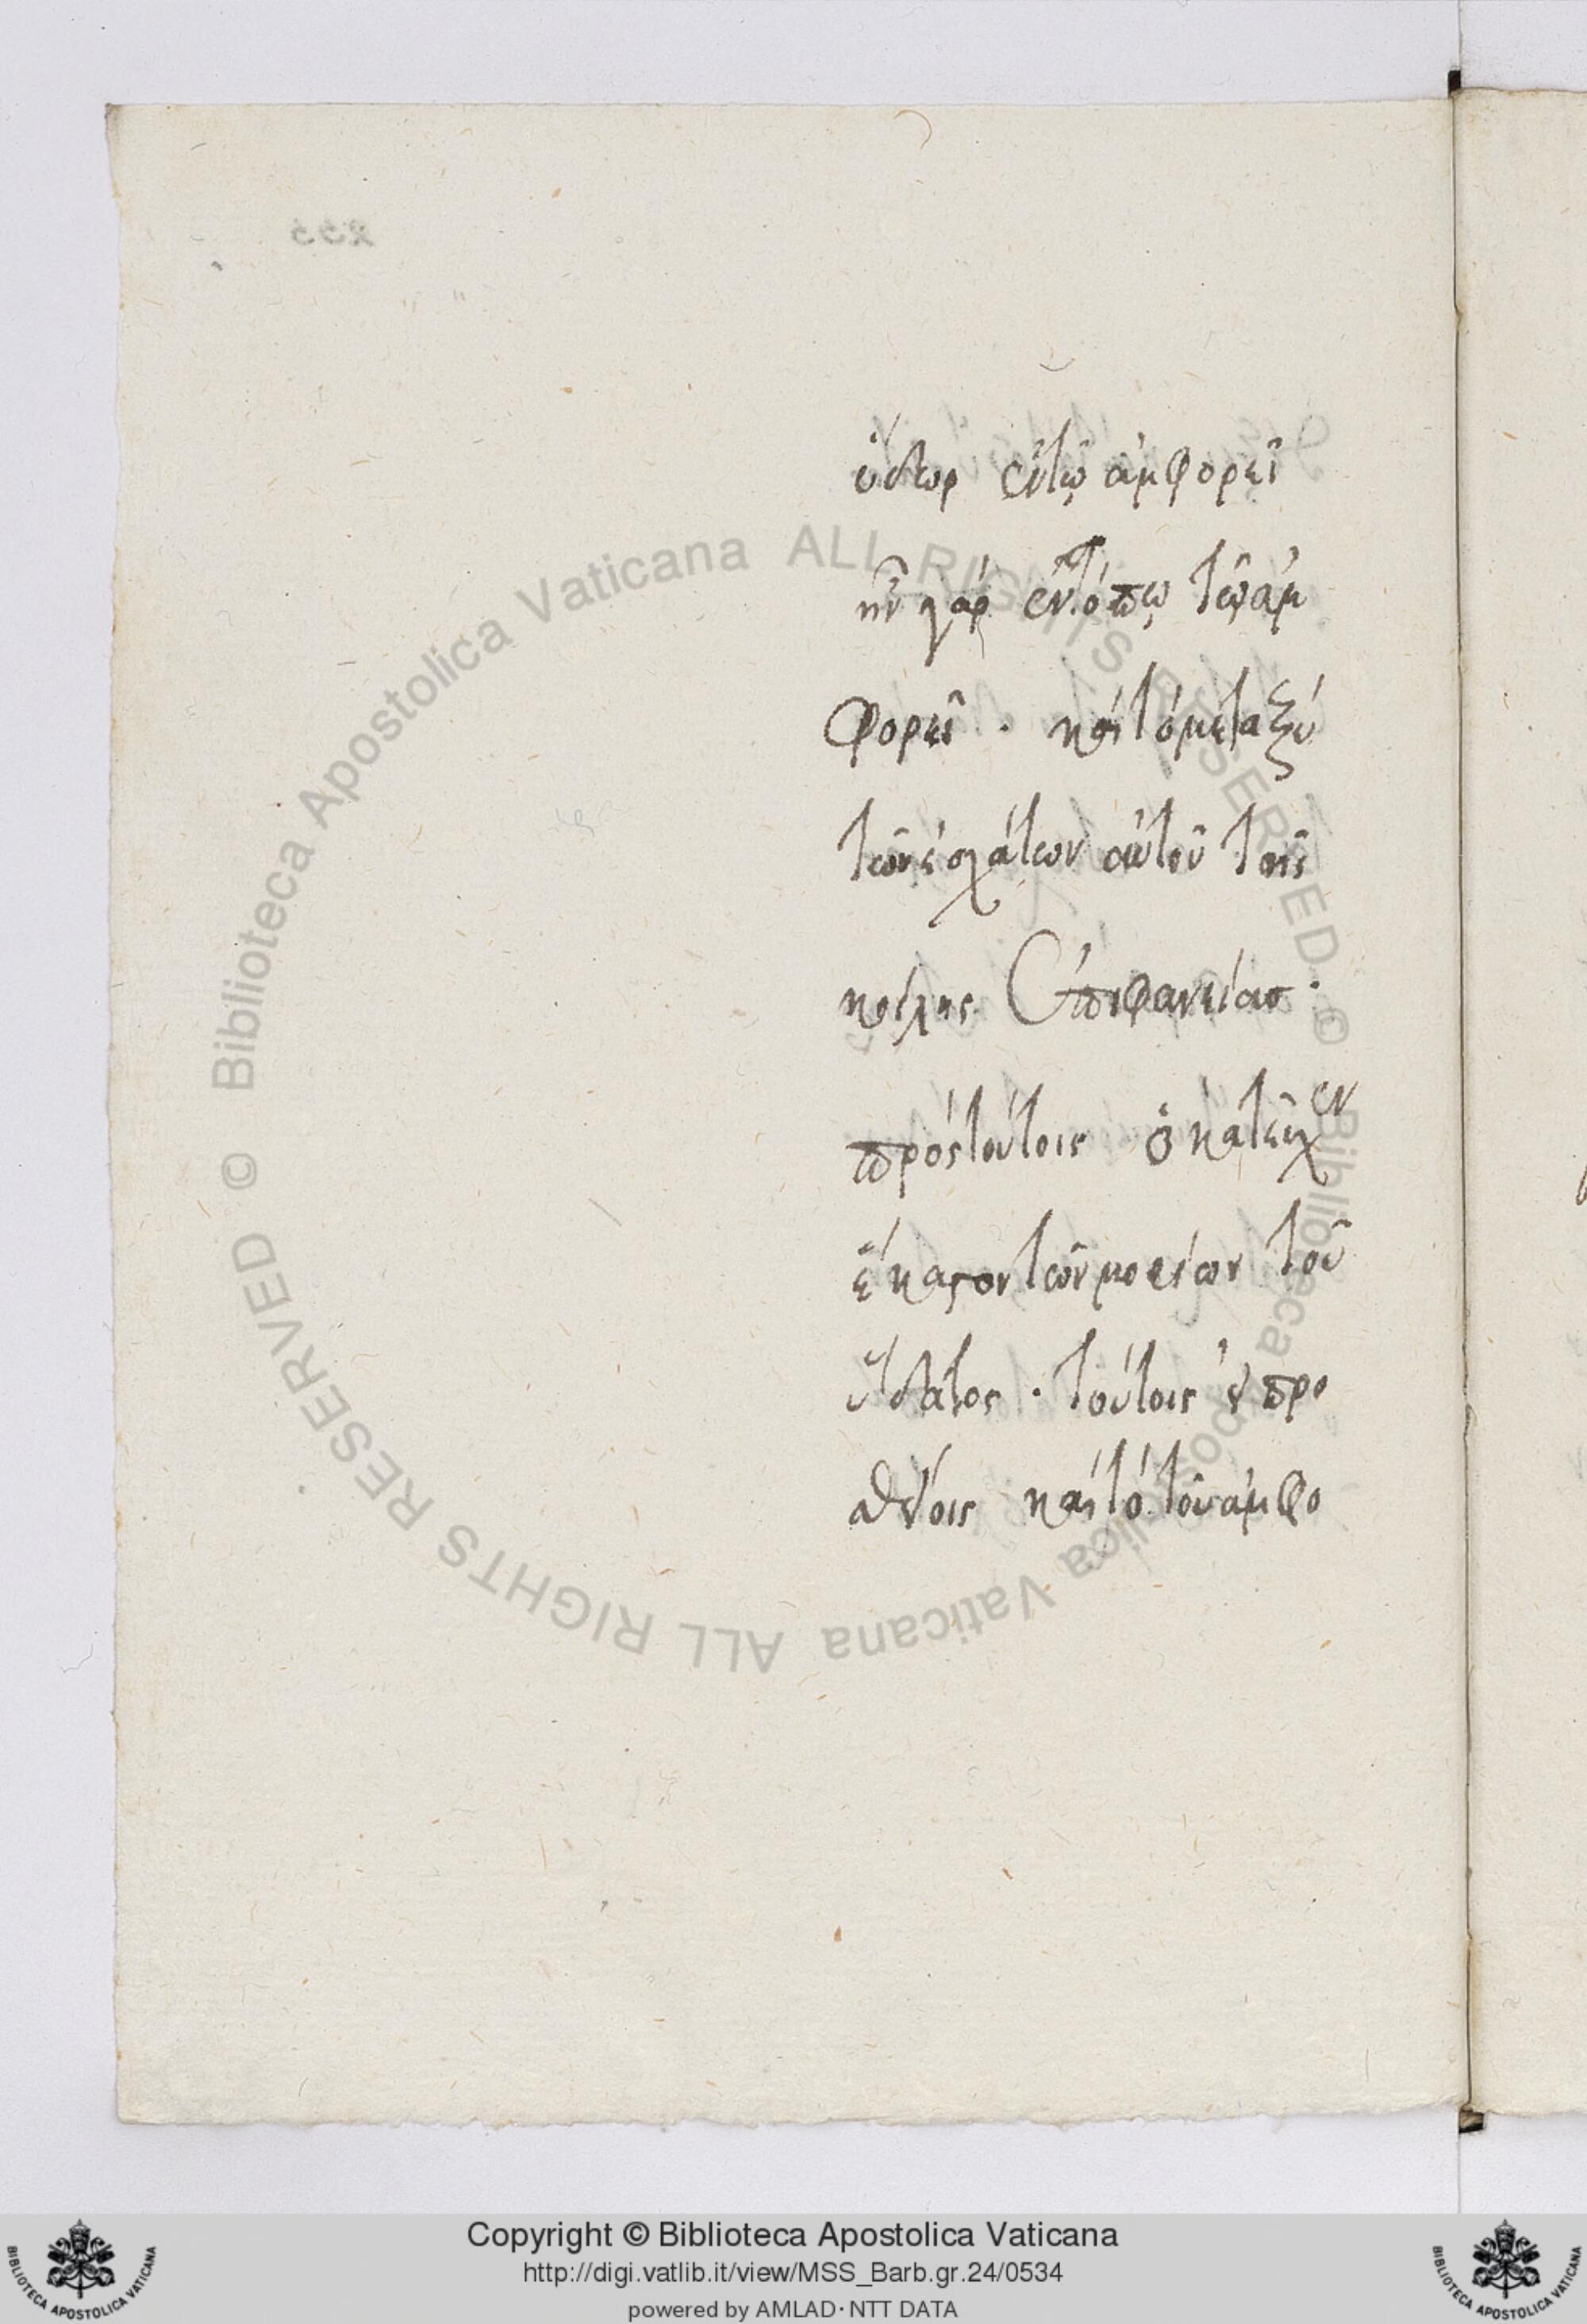 ὕδωρ ἐν τῷ ἀμφορεῖ
ἦν γὰρ ἐν τόπῳ τῷ ἀμ
φορεῖ · καὶ τὸ μεταξὺ
τῶν ἐσχάτων αὐτοῦ τῆς
κοίλης ἐπιφανείας ·
πρὸς τούτοις ὃ κατεῖχεν
ἕκαστον τῶν μορίων τοῦ
ὕδατος · τούτοις
καὶ τὸ τοῦ ἀμφο
© Biblioteca Apostolica Vaticana ALL RIGHTS RESERVED © Biblioteca Apostolica Vaticana ALL RIGHTS RESERVED
Copyright © Biblioteca Apostolica Vaticana
http://digi.vatlib.it/view/MSS_Barb.gr.24/0534
powered by AMLAD·NTT DATA
BIBLIOTECA APOSTOLICA VATICANA
BIBLIOTECA APOSTOLICA VATICANA